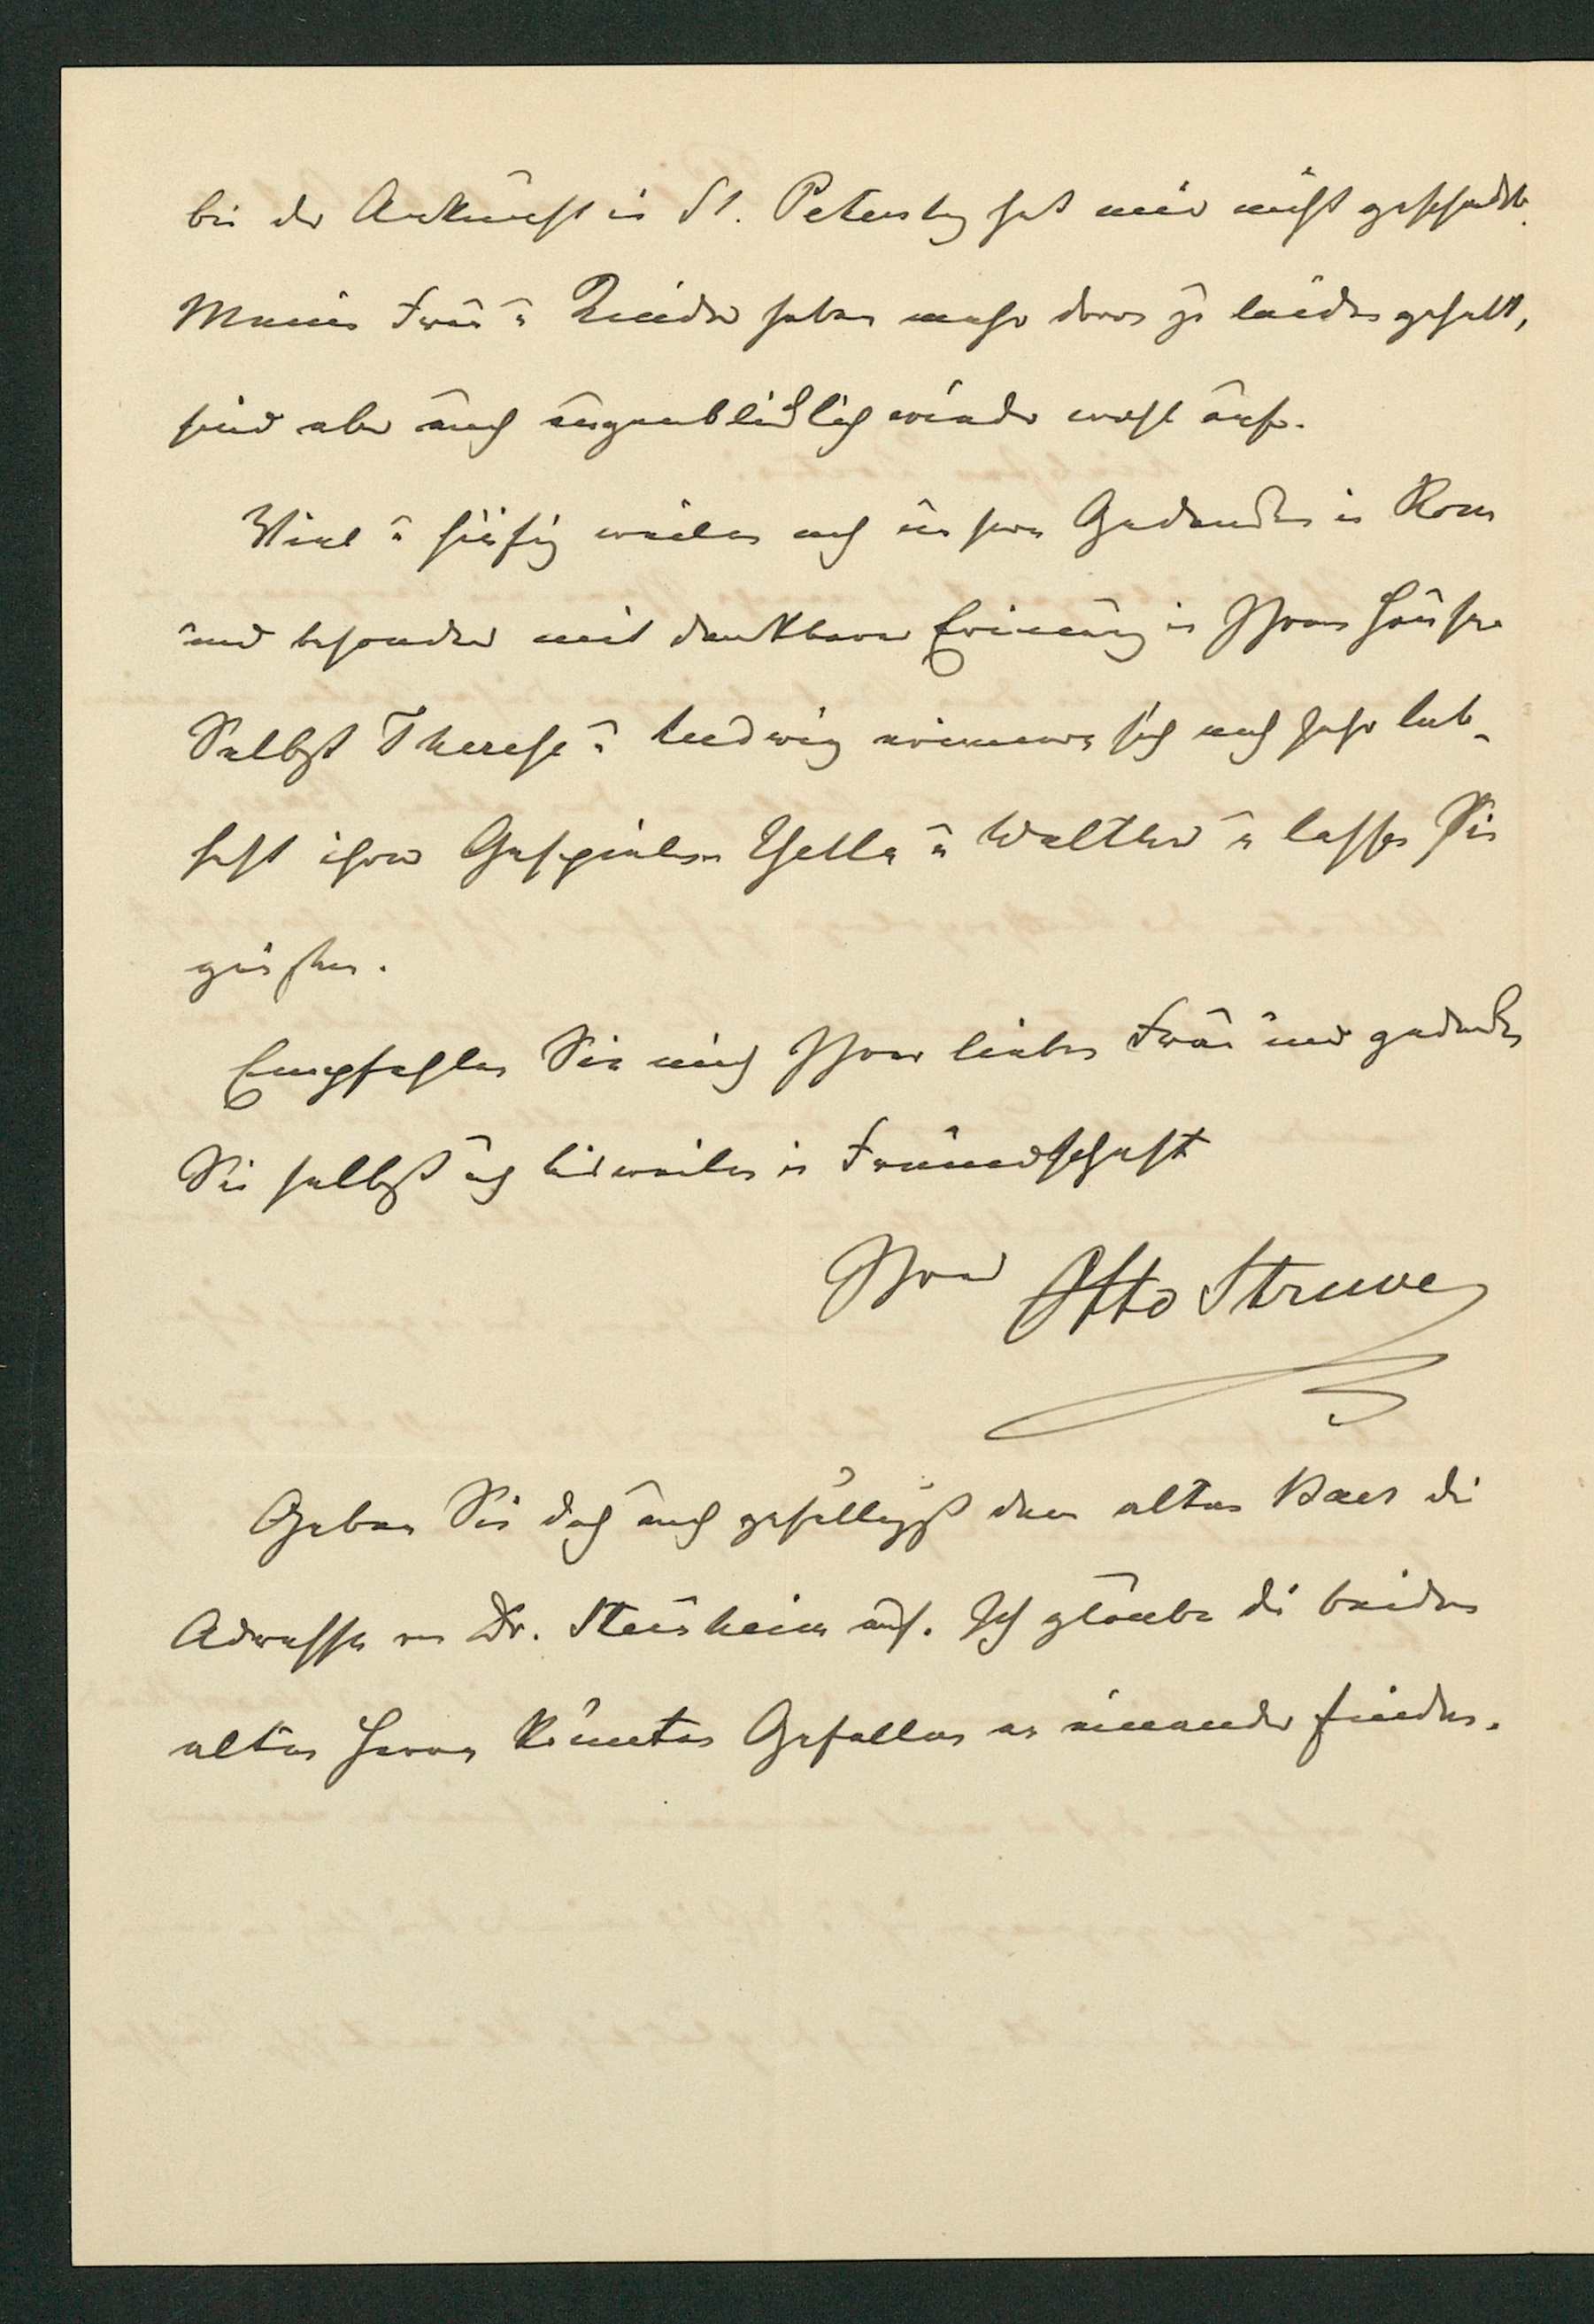 bei der Ankunft in St. Petersburg hat mir nicht geschadet.
Meine Frau u Kinder haben mehr davon zu leiden gehabt,
sind aber auch augenblicklich wieder wohl auf.
Viel u häufig weilen noch unsere Gedanken in Rom
und besonders mit dankbarer Erinnerung in Ihrem Hause.
Selbst Therese u Ludwig erinnern sich noch sehr leb-
haft ihrer Gespielen Ysella u Walther u lassen Sie
grüßen.
Empfehlen Sie mich Ihrer lieben Frau und gedenken
Sie selbst auch bisweilen in Freundschaft
Ihres Otto Struve
Geben Sie doch auch gefälligst dem alten Baer die
Adresse von Dr. Steinheim auf. Ich glaube die beiden
alten Herren könnten Gefallen an einander finden.